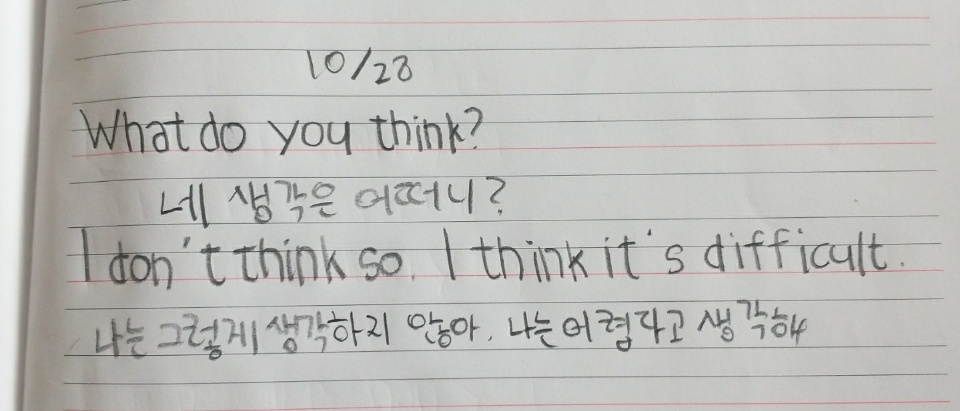 10/28
What do you think?
네 생각은 어떠니?
I don't think so. I think it's difficult.
나는 그렇게 생각하지 않아. 나는 어렵다고 생각해